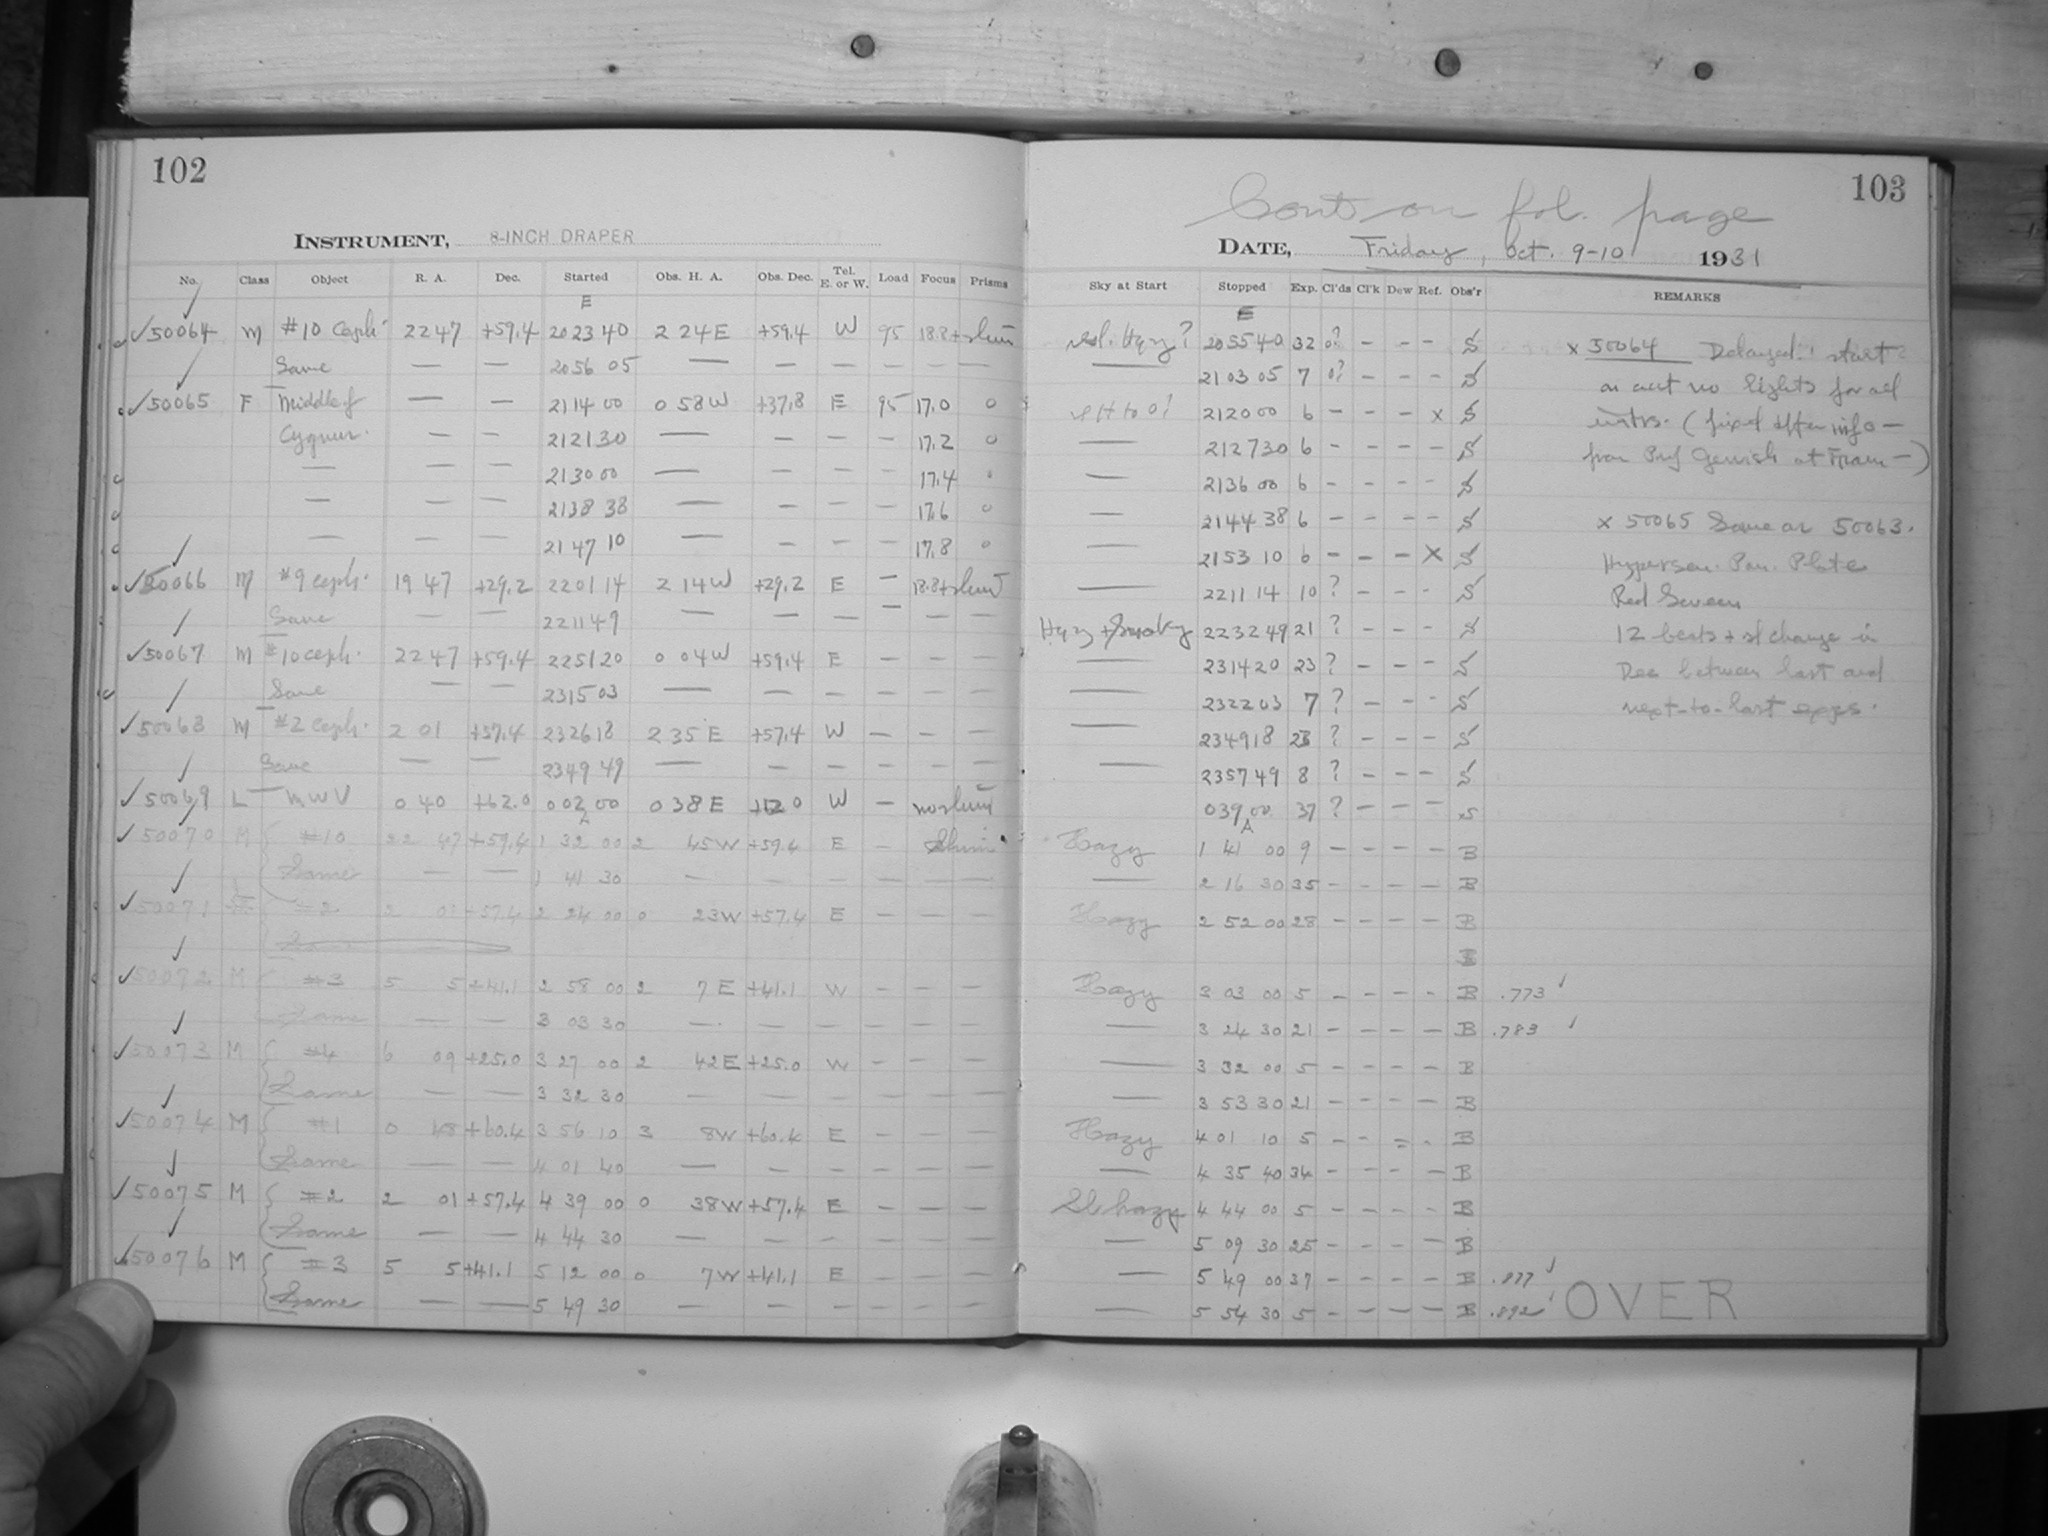 102
INSTRUMENT, 8-INCH DRAPER
No. Class Object R. A. Dec. Started Obs. H. A. Obs. Dec. Tel. E. or W. Load Focus Prisms
E
50064 M #10 Ceph. 22 47 +59.4 20 23 40 2 24 E +59.4 W 95 18.8+
Same — — 20 56 05 — — — — — —
50065 F Middle of — — 21 14 00 0 58 W +37.8 E 95 17.0 0
Cygnus. — — 21 21 30 — — — — 17.2 0
— — — 21 30 00 — 17.4 0
— — — 21 38 38 — — — — 17.6 0
— — — 21 47 10 — — — — 17.8 0
50066 M #9 ceph. 19 47 +29.2 22 01 14 2 14 W +29.2 E — 18.8+
Same — — 22 11 49 — — — — — —
50067 M #10 ceph. 22 47 +59.4 22 51 20 0 04 W +59.4 E — — —
Same — — 23 15 03 — — — — — —
50068 M #2 Ceph. 2 01 +57.4 23 26 18 2 35 E +57.4 W — — —
Same — — 23 49 49 — — — — — —
50069 L MWV 0 40 +62.0 0 02 00 0 38 E W — no
50070 M #10 22 47 +59.4 1 32 00 2 45 W +59.4 E —
Same — — 1 41 30 — — — — — —
50071 #2 2 01 +57.4 2 24 00 0 23 W +57.4 E — — —
50072 M #3 5 5 +41.1 2 58 00 2 7 E +41.1 W — — —
Same — — 3 03 30 — — — — — —
50073 M #4 6 09 +25.0 3 27 00 2 42 E +25.0 W — — —
Same — — 3 32 30 — — — — — —
50074 M #1 0 48 +60.4 3 56 10 3 8 W +60.4 E — — —
Same — — 4 01 40 — — — — — —
50075 M #2 2 01 +57.4 4 39 00 0 38 W +57.4 E — — —
Same — — 4 44 30 — — — — — —
50076 M #3 5 5 +41.1 5 12 00 0 7 W +41.1 E — — —
Same — — 5 49 30 — — — — — —
103
Cont on fol. page
DATE, Friday, Oct. 9-10 1931
Sky at Start Stopped Exp. Cl'ds Cl'k Dew Ref. Obs'r REMARKS
E
Hazy? 20 55 40 32 0? — — — S x 50064 Delayed start
— 21 03 05 7 0? — — — S no lights for all
21 20 00 6 — — — x S
— 21 27 30 6 — — — — S
— 21 36 00 6 — — — — S
— 21 44 38 6 — — — — S x 50065 Same as 50063.
— 21 53 10 6 — — — X S Hypersen. Pan. Plate
— 22 11 14 10 ? — — — S Red Screen
Hazy + Smoky 22 32 49 21 ? — — — S 12 beats + sl change in
— 23 14 20 23 ? — — — S Dec between last and
— 23 22 03 7 ? — — — S next-to-last exps.
— 23 49 18 23 ? — — — S
— 23 57 49 8 ? — — — S
0 39 00 37 ? — — — S
A
Hazy 1 41 00 9 — — — — B
— 2 16 30 35 — — — — B
Hazy 2 52 00 28 — — — — B
B
Hazy 3 03 00 5 — — — — B .773
— 3 24 30 21 — — — — B .783
— 3 32 00 5 — — — — B
— 3 53 30 21 — — — — B
Hazy 4 01 10 5 — — — — B
— 4 35 40 34 — — — — B
Sl hazy 4 44 00 5 — — — — B
— 5 09 30 25 — — — — B
— 5 49 00 37 — — — — B .877
— 5 54 30 5 — — — — B .892
OVER